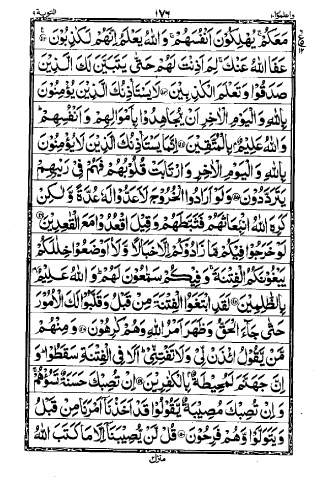 واعلموا ١٠ ١٧٦ التوبة ٩
مَعَكُمْ ۚ يُهْلِكُوْنَ اَنْفُسَهُمْ ۚ وَاللّٰهُ يَعْلَمُ اِنَّهُمْ لَكٰذِبُوْنَ
عَفَا اللّٰهُ عَنْكَ ۚ لِمَ اَذِنْتَ لَهُمْ حَتّٰى يَتَبَيَّنَ لَكَ الَّذِيْنَ
صَدَقُوْا وَتَعْلَمَ الْكٰذِبِيْنَ لَا يَسْتَاْذِنُكَ الَّذِيْنَ يُؤْمِنُوْنَ
بِاللّٰهِ وَالْيَوْمِ الْاٰخِرِ اَنْ يُّجَاهِدُوْا بِاَمْوَالِهِمْ وَاَنْفُسِهِمْ ؕ
وَاللّٰهُ عَلِيْمٌۢ بِالْمُتَّقِيْنَ اِنَّمَا يَسْتَاْذِنُكَ الَّذِيْنَ لَا يُؤْمِنُوْنَ
بِاللّٰهِ وَالْيَوْمِ الْاٰخِرِ وَارْتَابَتْ قُلُوْبُهُمْ فَهُمْ فِيْ رَيْبِهِمْ
يَتَرَدَّدُوْنَ وَلَوْ اَرَادُوا الْخُرُوْجَ لَاَعَدُّوْا لَهٗ عُدَّةً وَّلٰكِنْ
كَرِهَ اللّٰهُ انْۢبِعَاثَهُمْ فَثَبَّطَهُمْ وَقِيْلَ اقْعُدُوْا مَعَ الْقٰعِدِيْنَ
لَوْ خَرَجُوْا فِيْكُمْ مَّا زَادُوْكُمْ اِلَّا خَبَالًا وَّلَا۟اَوْضَعُوْا خِلٰلَكُمْ
يَبْغُوْنَكُمُ الْفِتْنَةَ ۚ وَفِيْكُمْ سَمّٰعُوْنَ لَهُمْ ؕ وَاللّٰهُ عَلِيْمٌۢ
بِالظّٰلِمِيْنَ لَقَدِ ابْتَغَوُا الْفِتْنَةَ مِنْ قَبْلُ وَقَلَّبُوْا لَكَ الْاُمُوْرَ
حَتّٰى جَآءَ الْحَقُّ وَظَهَرَ اَمْرُ اللّٰهِ وَهُمْ كٰرِهُوْنَ وَمِنْهُمْ
مَّنْ يَّقُوْلُ ائْذَنْ لِّيْ وَلَا تَفْتِنِّيْ ؕ اَلَا فِي الْفِتْنَةِ سَقَطُوْا ؕ وَ
اِنَّ جَهَنَّمَ لَمُحِيْطَةٌۢ بِالْكٰفِرِيْنَ اِنْ تُصِبْكَ حَسَنَةٌ تَسُؤْهُمْ ۚ
وَاِنْ تُصِبْكَ مُصِيْبَةٌ يَّقُوْلُوْا قَدْ اَخَذْنَآ اَمْرَنَا مِنْ قَبْلُ
وَيَتَوَلَّوْا وَّهُمْ فَرِحُوْنَ قُلْ لَّنْ يُّصِيْبَنَآ اِلَّا مَا كَتَبَ اللّٰهُ
منزل